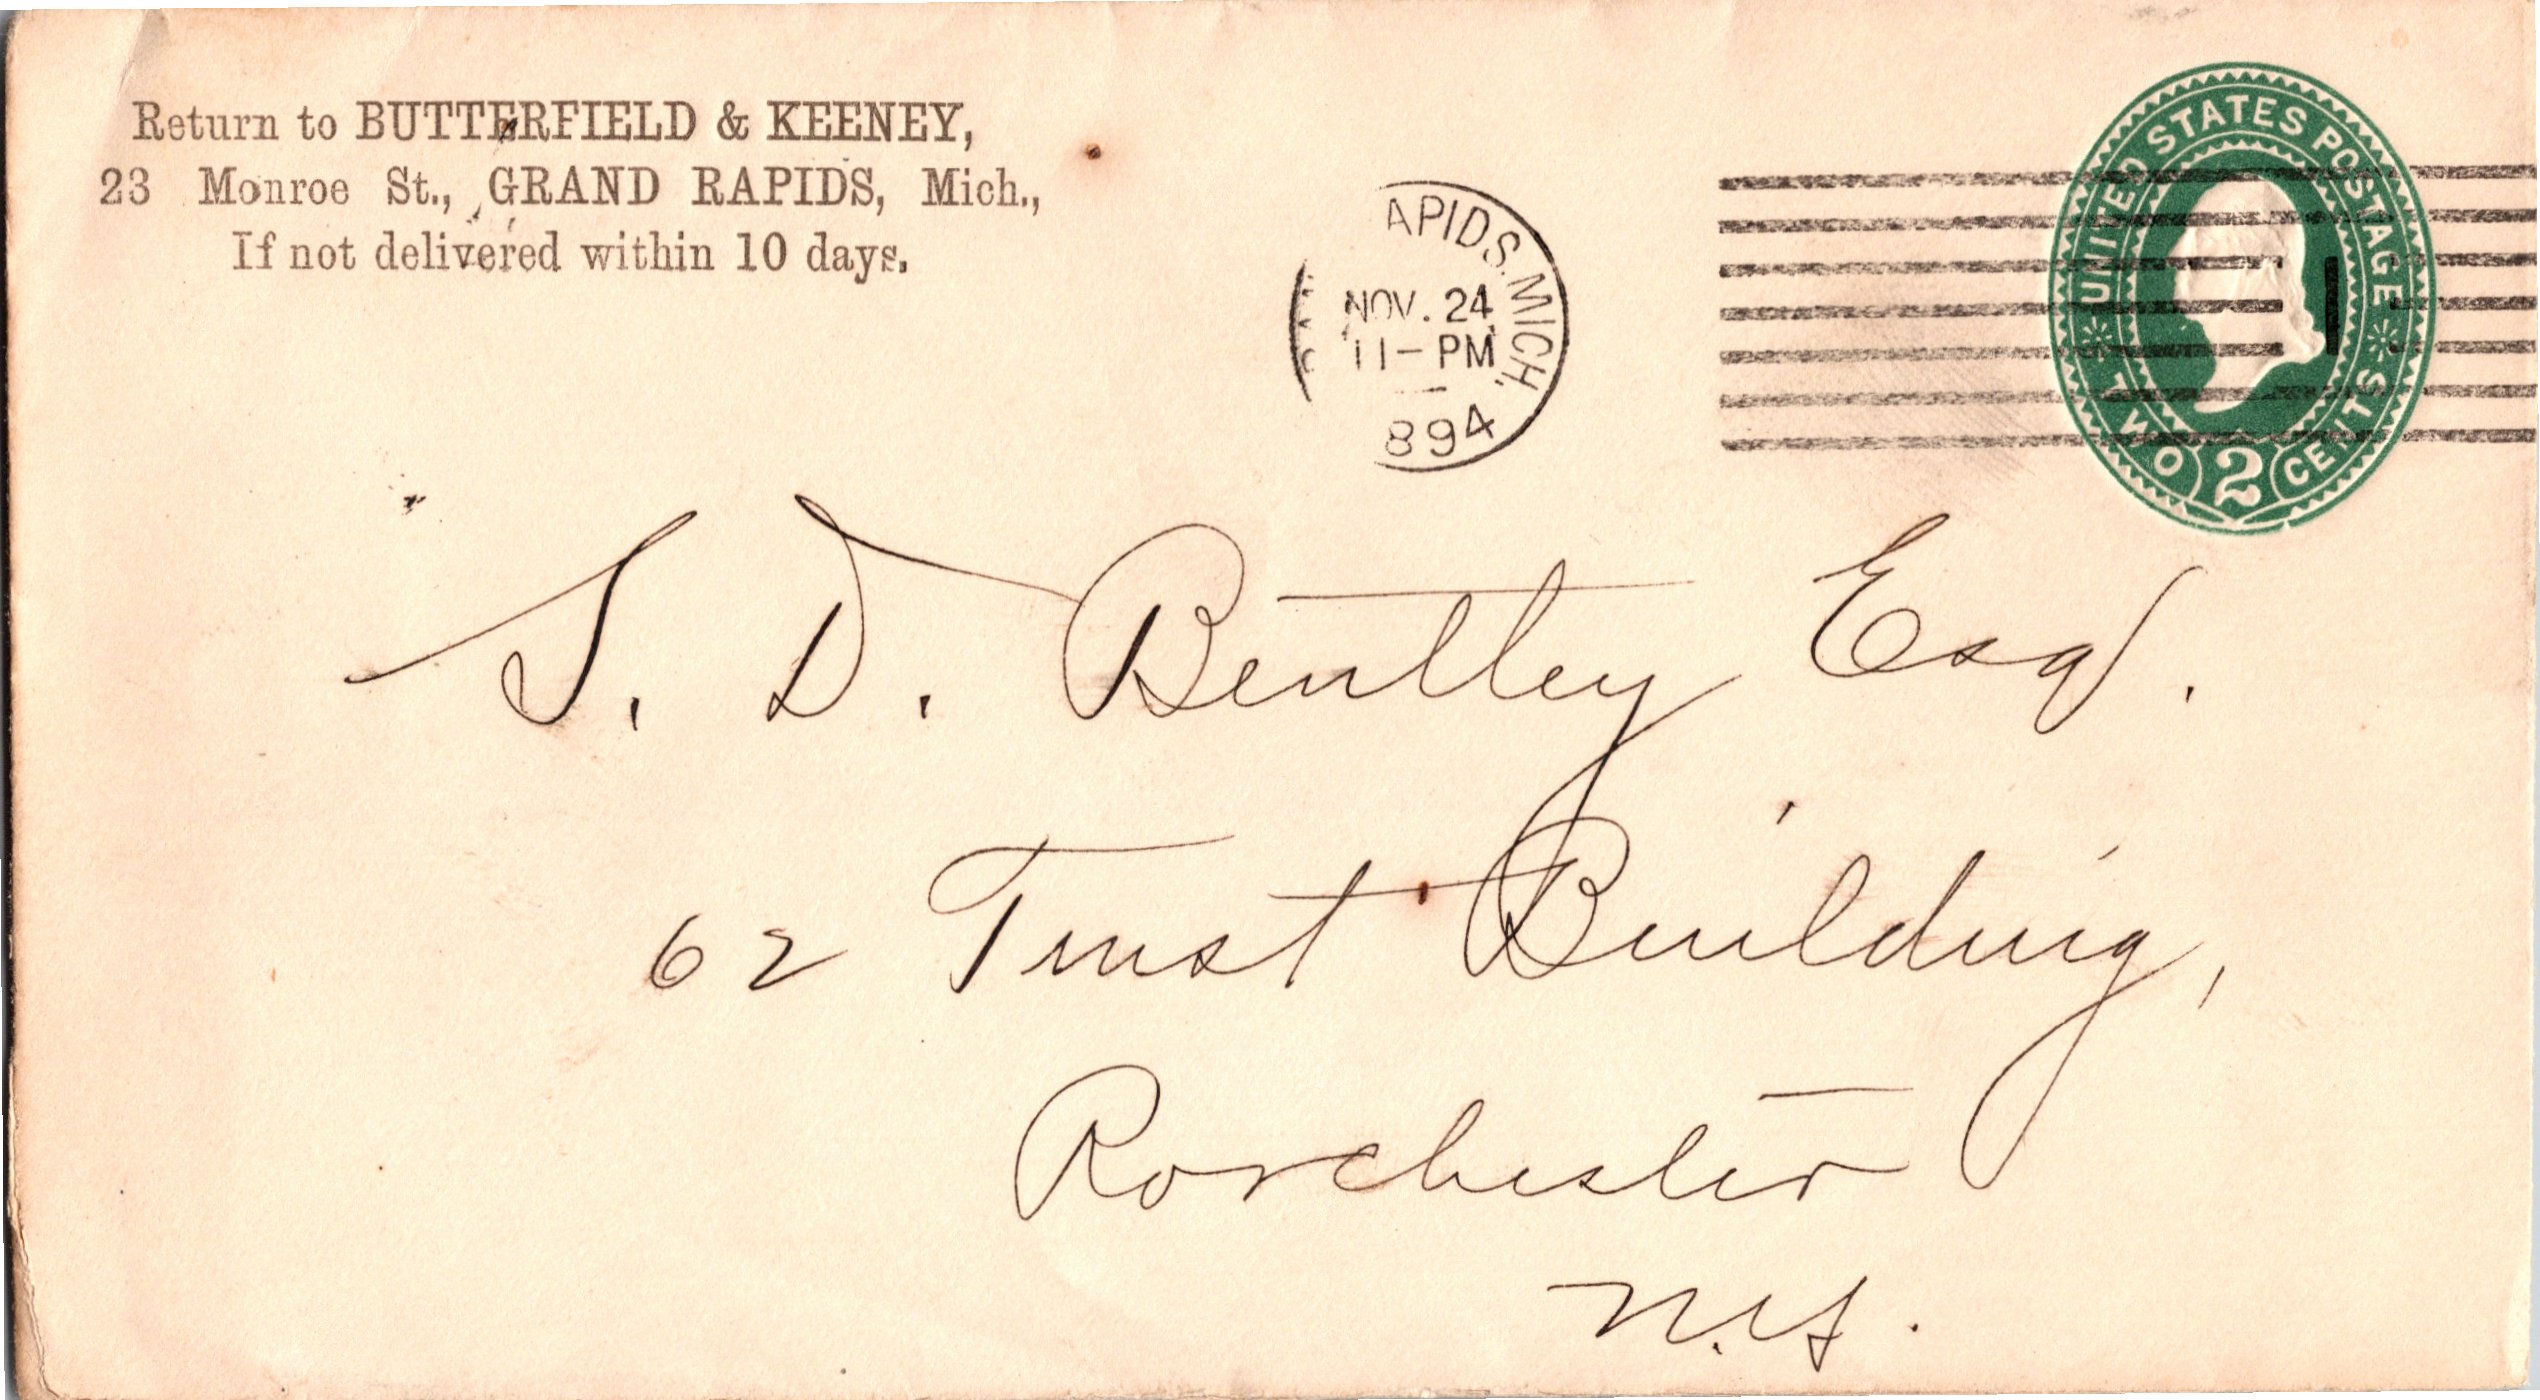 Return to BUTTERFIELD & KEENEY,
23 Monroe St., GRAND RAPIDS, Mich.,
If not delivered within 10 days.
APIDS. MICH.
NOV. 24
11-PM
894
UNITED STATES POSTAGE
TWO 2 CENTS
1
S. D. Bentley Esq.
62 Trust Building,
Rochester
N.Y.